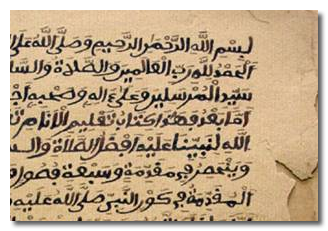 بسم الله الرحمن الرحيم وصلى الله على
الحمد لله رب العالمين والصلاة والسلا
سيد المرسلين وعلى اله وصحبه اجم
اما بعد فهذا كتاب تعليم الانام
الله لنبينا عليه افضل الصلاة والس
وينحصر في مقدمة وسبعة فصور
المقدمة في كور النبي صلى الله عليه